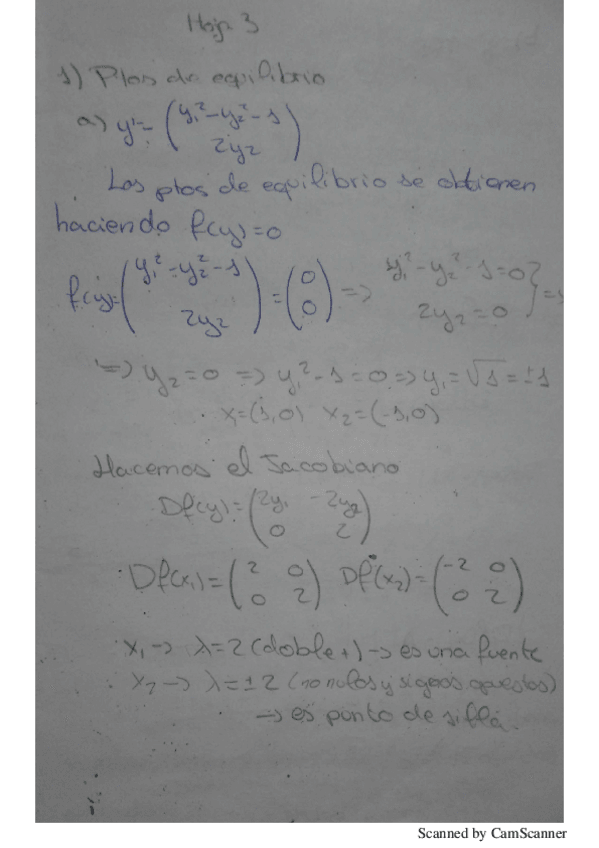 Hoja 3
1) Ptos de equilibrio
a) y' = (y₁² - y₂² - 1
2y₂)
Los ptos de equilibrio se obtienen
haciendo f(y)=0
f(y) = (y₁² - y₂² - 1
2y₂) = (0
0) => y₁² - y₂² - 1 = 0
2y₂ = 0 } =>
=> y₂ = 0 => y₁² - 1 = 0 => y₁ = √1 = ±1
· x₁ = (1,0) x₂ = (-1,0)
Hacemos el Jacobiano
Df(y) = (2y₁ -2y₂
0 2)
· Df(x₁) = (2 0
0 2) Df(x₂) = (-2 0
0 2)
· x₁ -> λ=2 (doble +) -> es una fuente
· x₂ -> λ=±2 (no nulos y signos opuestos)
-> es punto de silla.
Scanned by CamScanner